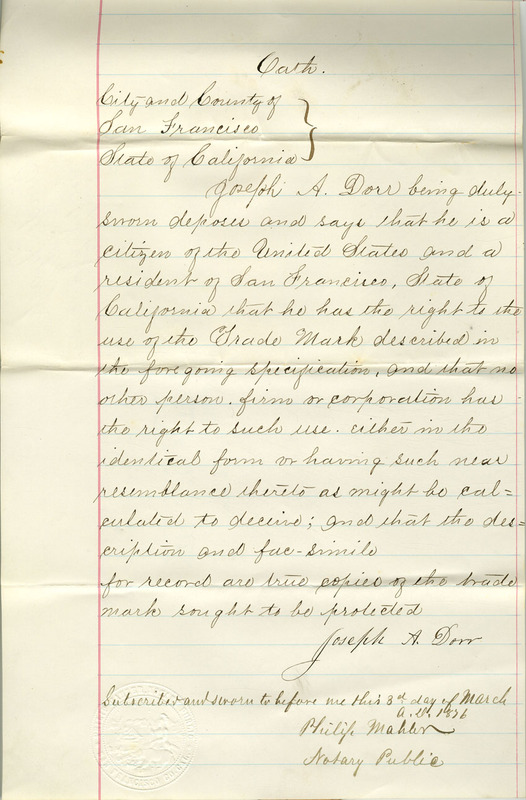 Oath.
City and County of
San Francisco
State of California
Joseph A. Dorr being duly
sworn deposes and says that he is a
citizen of the United States and a
resident of San Francisco, State of
California that he has the right to the
use of the Trade Mark described in
the foregoing specification, and that no
other person. firm or corporation has
the right to such use. either in the
identical form or having such near
resemblance thereto as might be cal=
culated to deceive; and that the des=
cription and fac-simile
for record are true copies of the trade
mark sought to be protected
Joseph A. Dorr
Subscribed and sworn to before me this 3rd day of March
A.D. 1876
Philip Mahler
Notary Public